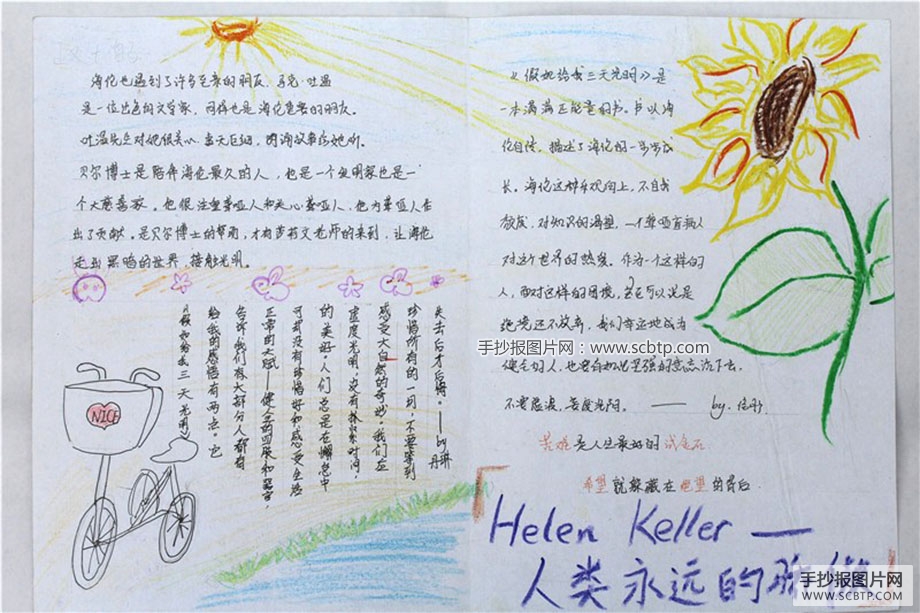 海伦也遇到了许多至亲的朋友，马克·吐温
是一位出色的文学家，同样也是海伦重要的朋友。
吐温先生对她很关心，事无巨细，朗诵故事给她听。
贝尔博士是陪伴海伦最久的人，也是一个发明家也是一
个大慈善家。他很注重聋哑人和关心聋哑人，他为聋哑人
出了贡献。是贝尔博士的帮助，才有莎莉文老师的来到，让海伦
走出黑暗的世界，接触光明。
《假如给我三天光明》
给我的感悟有两点。它
告诉了我们有大部分人都有
正常的天赋——健全的四肢和器官，
可却没有珍惜好和感受生活
的美好。人们总是在懈怠中
虚度光明，没有探索时间，
感受大自然的奇妙。我们应
珍惜所有的一切，不要等到
失去后才后悔。——by 丹琳
NICE
《假如给我三天光明》是
一本满满正能量的书。书以海
伦自传，描述了海伦的一步步成
长。海伦这种乐观向上，不自我
放弃，对知识的渴望，一个聋哑盲人
对这个世界的热爱。作为一个这样的
人，面对这样的困境，甚至可以说是
绝境还不放弃，我们幸运地成为
健全的人，也要有如此坚强的意志活下去。
不要虚度，荒度光阴。—— by.
苦难是人生最好的试金石
希望就躲藏在绝望的背后
Helen Keller —
人类永远的骄傲
手抄报图片网：www.scbtp.com
手抄报图片网
WWW.SCBTP.COM